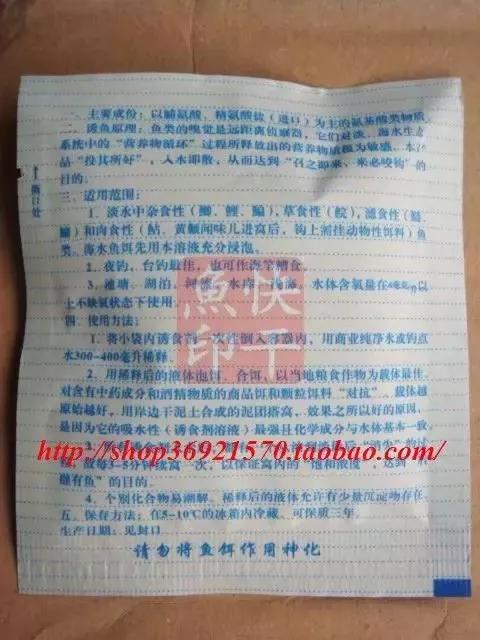 一、主要成份：以脯氨酸、精氨酸盐（进口）为主的氨基酸类物质
二、诱鱼原理：鱼类的嗅觉是远距离侦察器，它们对淡、海水生态
系统中的“营养物循环”过程所释放出的营养物质极为敏感。本产
品“投其所好”，入水即散，从而达到“召之即来，来必咬钩”的
目的。
三、适用范围：
1、淡水中杂食性（鲫、鲤、鳊），草食性（鲩），滤食性（鲢、
鳙）和肉食性（鲇、黄颡闻味儿进窝后，钩上需挂动物性饵料）鱼
类。海水鱼饵先用本溶液充分浸泡。
2、夜钓，台钓最佳，也可作海竿糟食。
3、池塘、湖泊、河流、水库、浅海、水体含氧量在 以
上不缺氧状态下使用。
四、使用方法：
1、将小袋内诱食剂一次性倒入容器内，用商业纯净水或钓点
水300-400毫升稀释。
2、用稀释后的液体泡饵、合饵，以当地粮食作物为载体最佳，
对含有中药成分和酒精物质的商品饵和颗粒饵料“对抗”。载体越
原始越好，用岸边干泥土合成的泥团搭窝，效果之所以好的原因，
是因为它的吸水性（诱食剂溶液）最强且化学成分与水体基本一致。
http://shop36921570.taobao.com/
故每3-5分钟续窝一次，以保证窝内的“饱和浓度”，达到“
有鱼”的目的。
4、个别化合物易潮解，稀释后的液体允许有少量沉淀物存在。
五、保存方法：在5-10℃的冰箱内冷藏，可保质三年。
生产日期：见封口
请勿将鱼饵作用神化
撕口处
魚快
印干